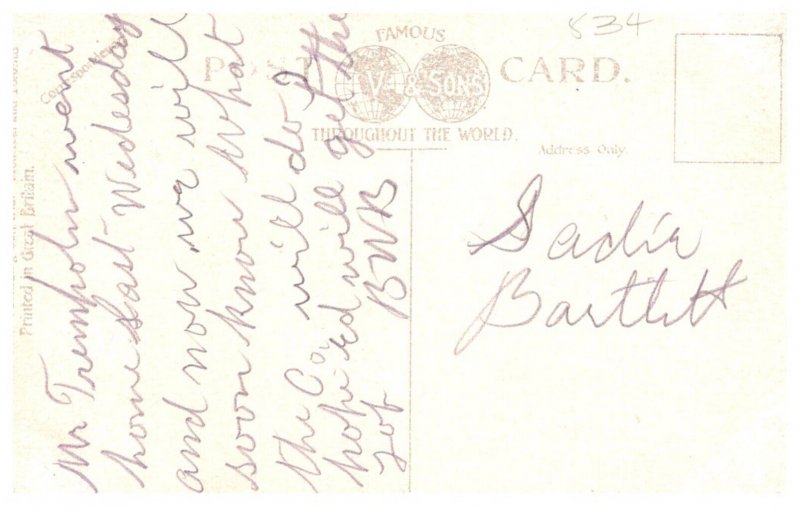 534
FAMOUS
POST CARD.
V- & SONS
THROUGHOUT THE WORLD.
Address Only.
Correspondence
Printed in Great Britain.
Mr Trempholm went
home Last Wedesday
and now we will
soon know what
the Co, will do?
hope Ed will get the
Job BWB
Sadie
Bartlett